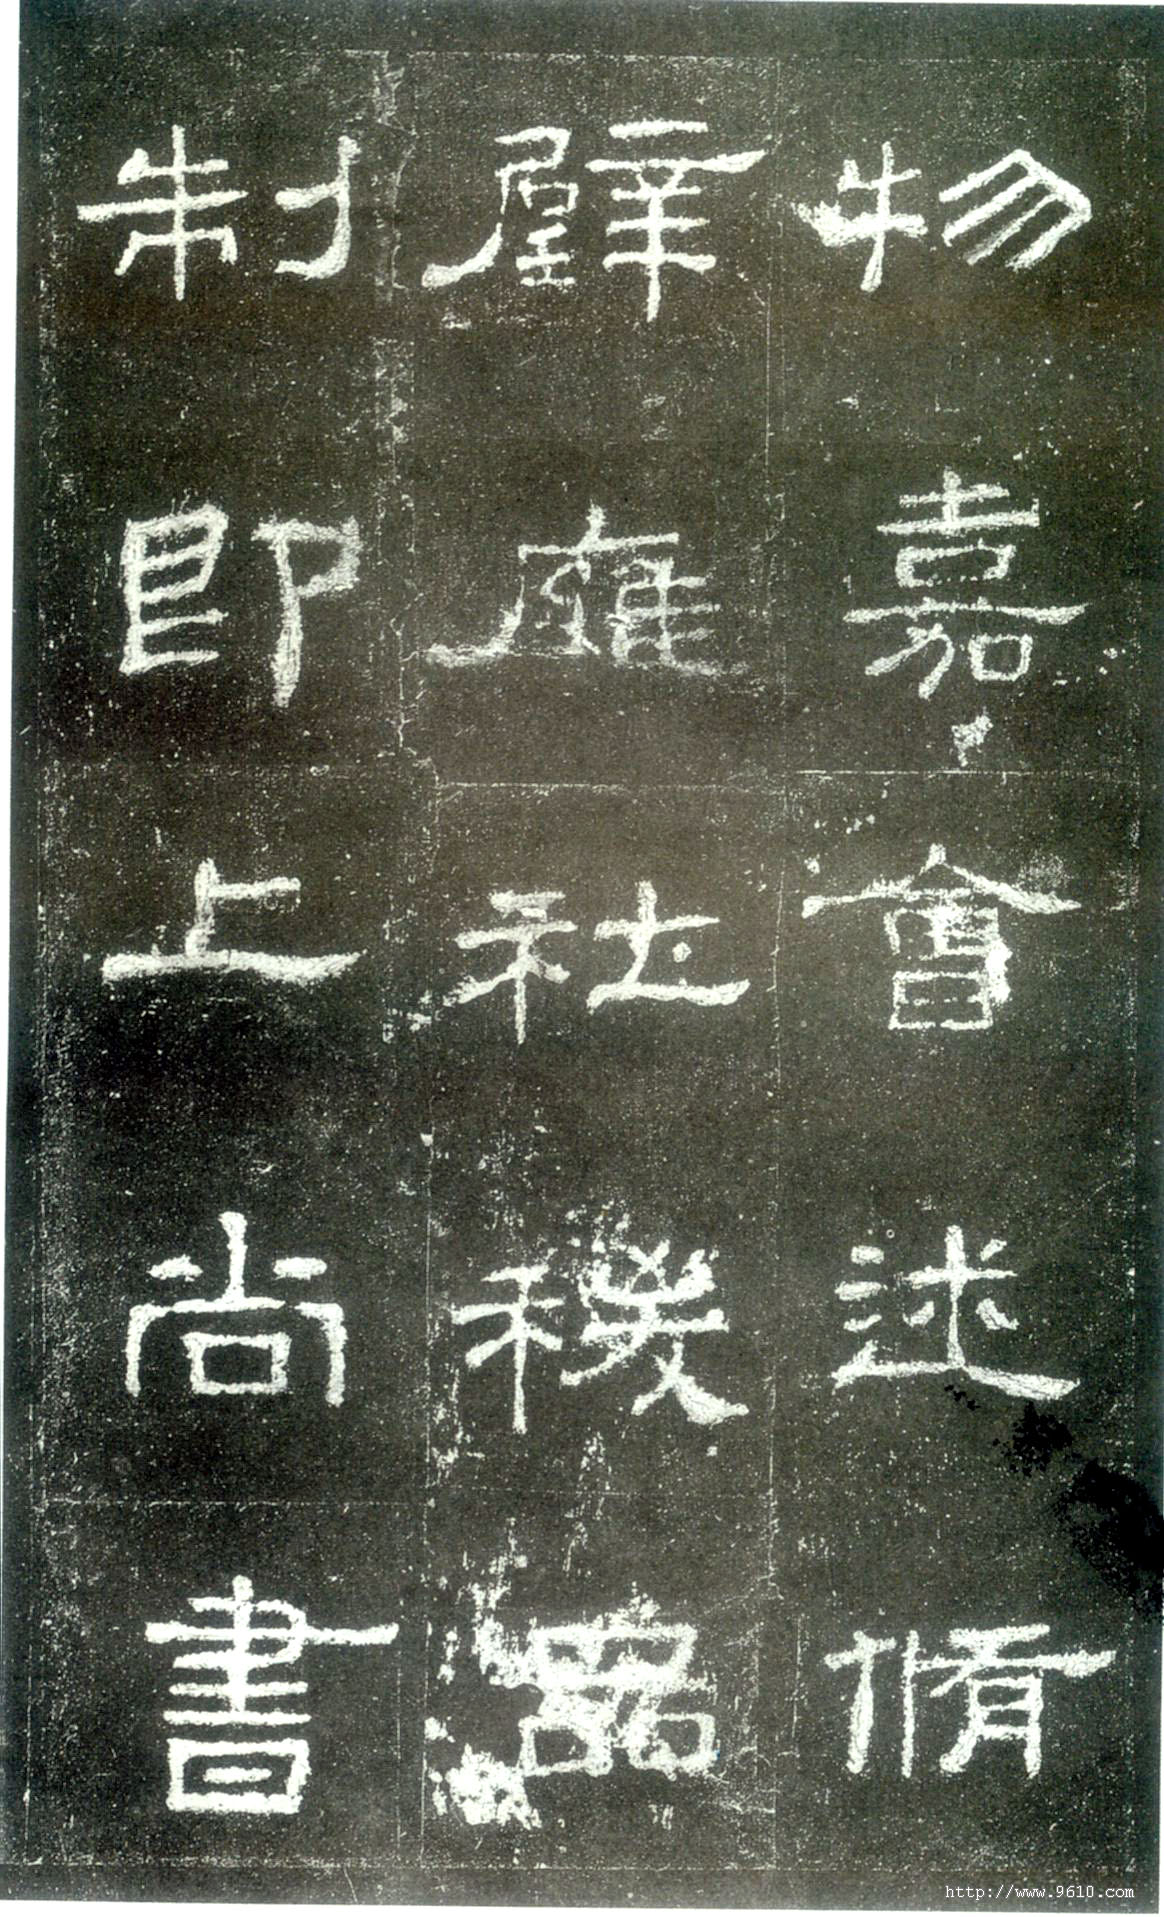 物嘉會述脩
璧廱社稷品
制即上尚書
http://www.9610.com